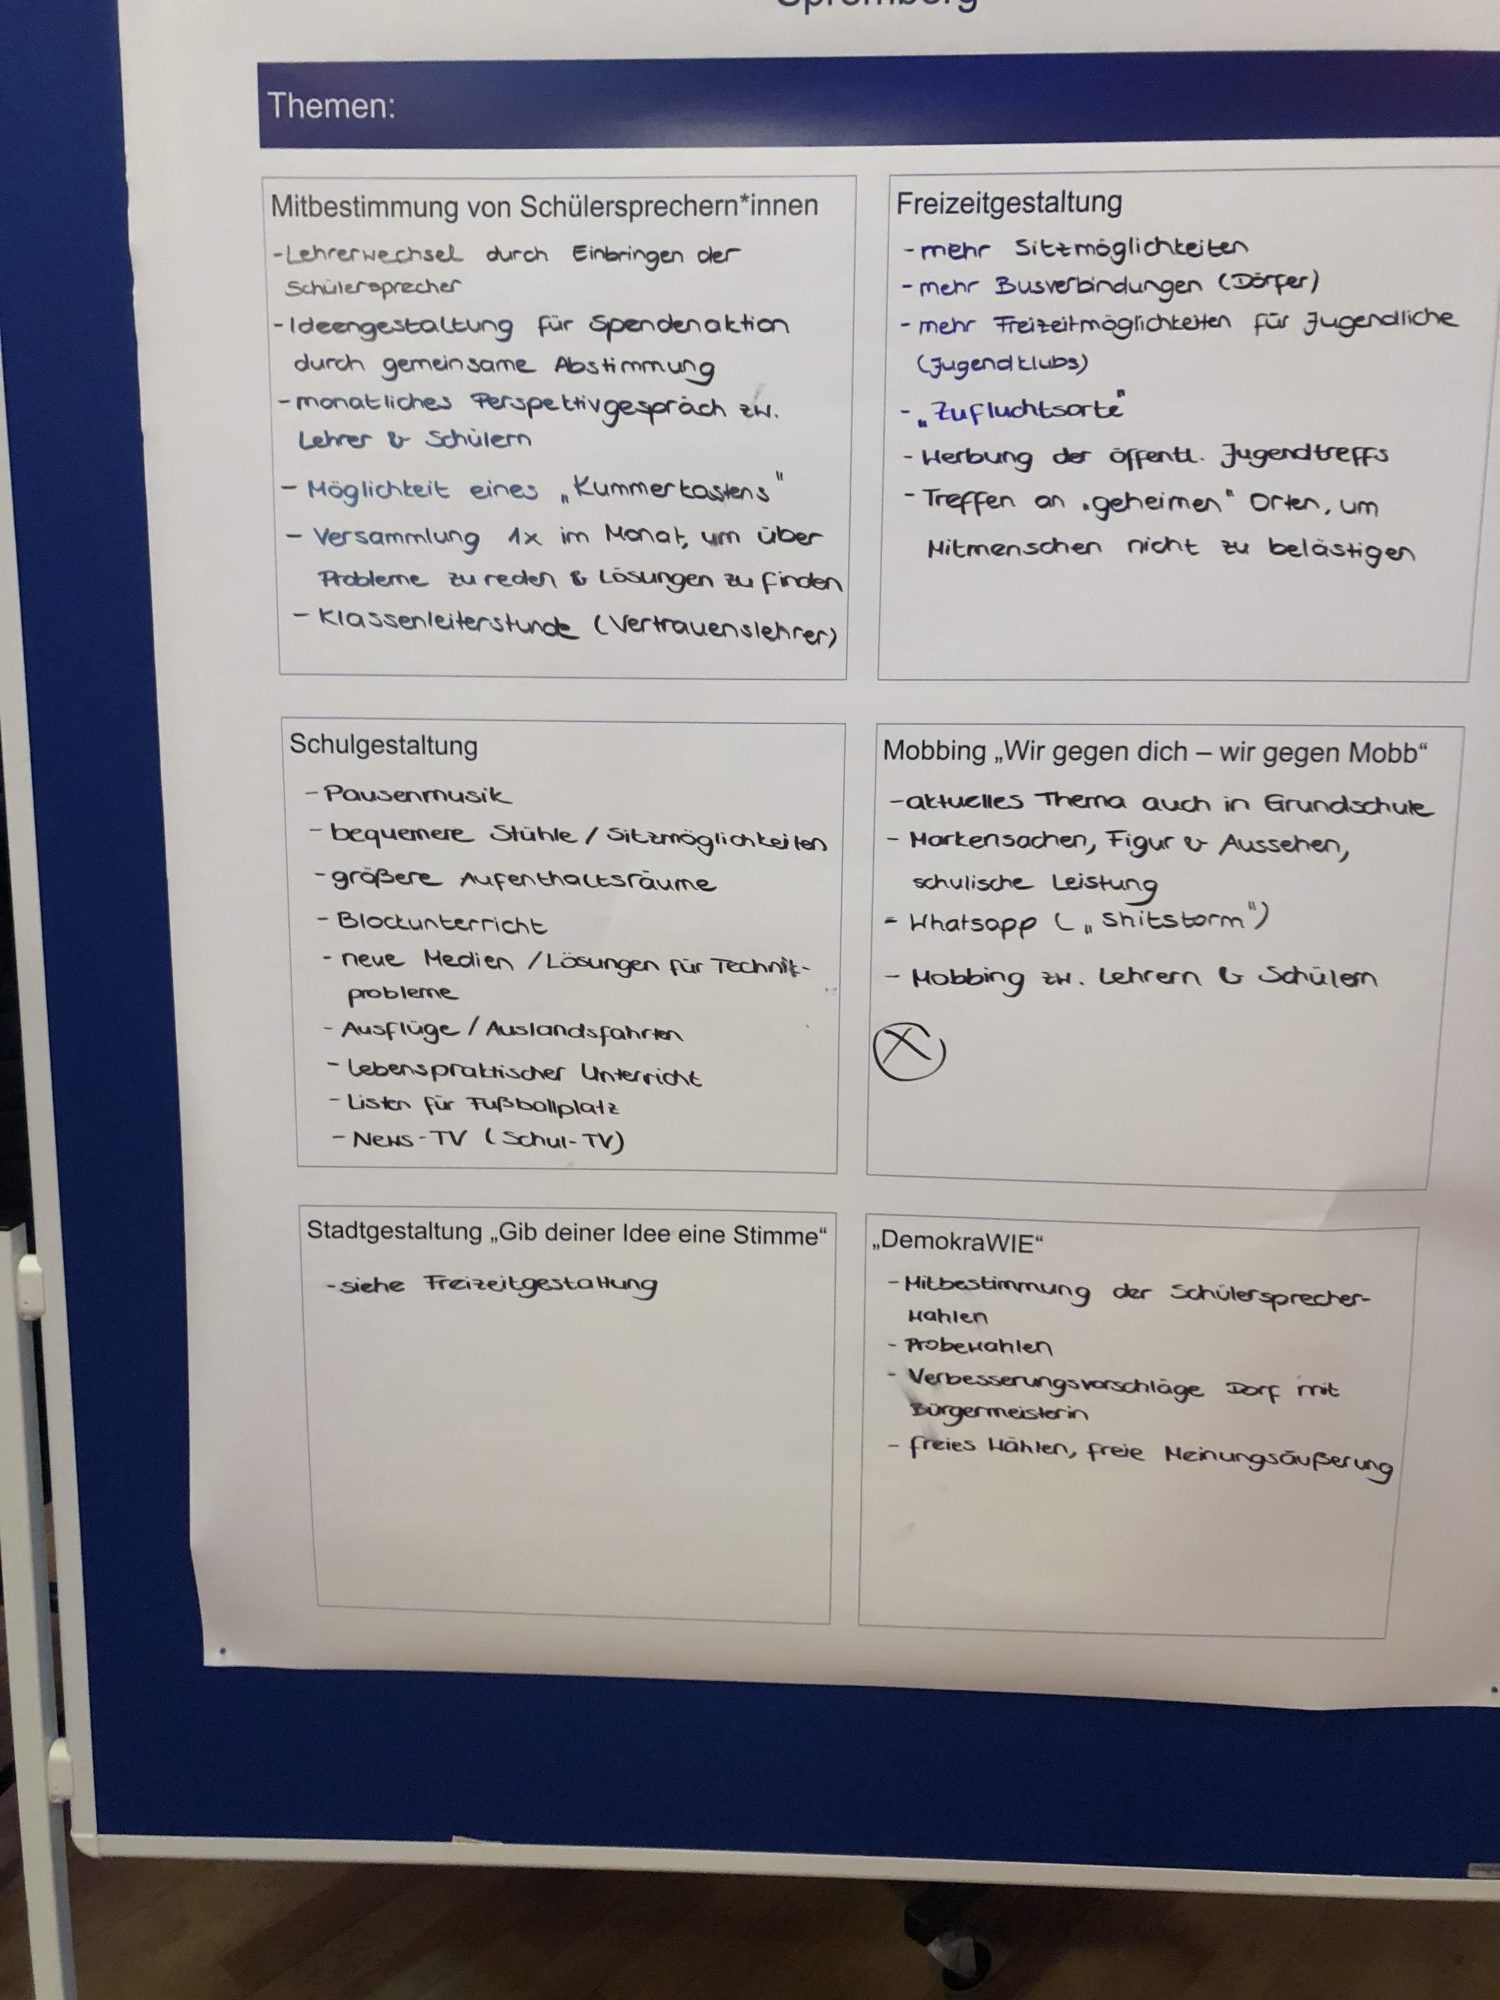 Spremberg
Themen:
Mitbestimmung von Schülersprechern*innen
-Lehrerwechsel durch Einbringen der
Schülersprecher
-Ideengestaltung für Spendenaktion
durch gemeinsame Abstimmung
-monatliches Perspektivgespräch zw.
Lehrer & Schülern
- Möglichkeit eines „Kummerkastens"
- Versammlung 1x im Monat, um über
Probleme zu reden & Lösungen zu finden
- Klassenleiterstunde (Vertrauenslehrer)
Freizeitgestaltung
-mehr Sitzmöglichkeiten
-mehr Busverbindungen (Dörfer)
-mehr Freizeitmöglichkeiten für Jugendliche
(Jugendklubs)
-„Zufluchtsorte"
-Werbung der öffentl. Jugendtreffs
-Treffen an „geheimen" Orten, um
Mitmenschen nicht zu belästigen
Schulgestaltung
-Pausenmusik
-bequemere Stühle / Sitzmöglichkeiten
-größere Aufenthaltsräume
-Blockunterricht
-neue Medien / Lösungen für Technik-
probleme
-Ausflüge / Auslandsfahrten
-Lebenspraktischer Unterricht
-Listen für Fußballplatz
-News-TV (Schul-TV)
Mobbing „Wir gegen dich – wir gegen Mobb“
-aktuelles Thema auch in Grundschule
- Markensachen, Figur & Aussehen,
schulische Leistung
- Whatsapp („shitstorm")
- Mobbing zw. Lehrern & Schülern
Stadtgestaltung „Gib deiner Idee eine Stimme“
-siehe Freizeitgestaltung
„DemokraWIE“
-Mitbestimmung der Schülersprecher-
wahlen
- Probewahlen
- Verbesserungsvorschläge Dorf mit
Bürgermeisterin
- freies Wählen, freie Meinungsäußerung